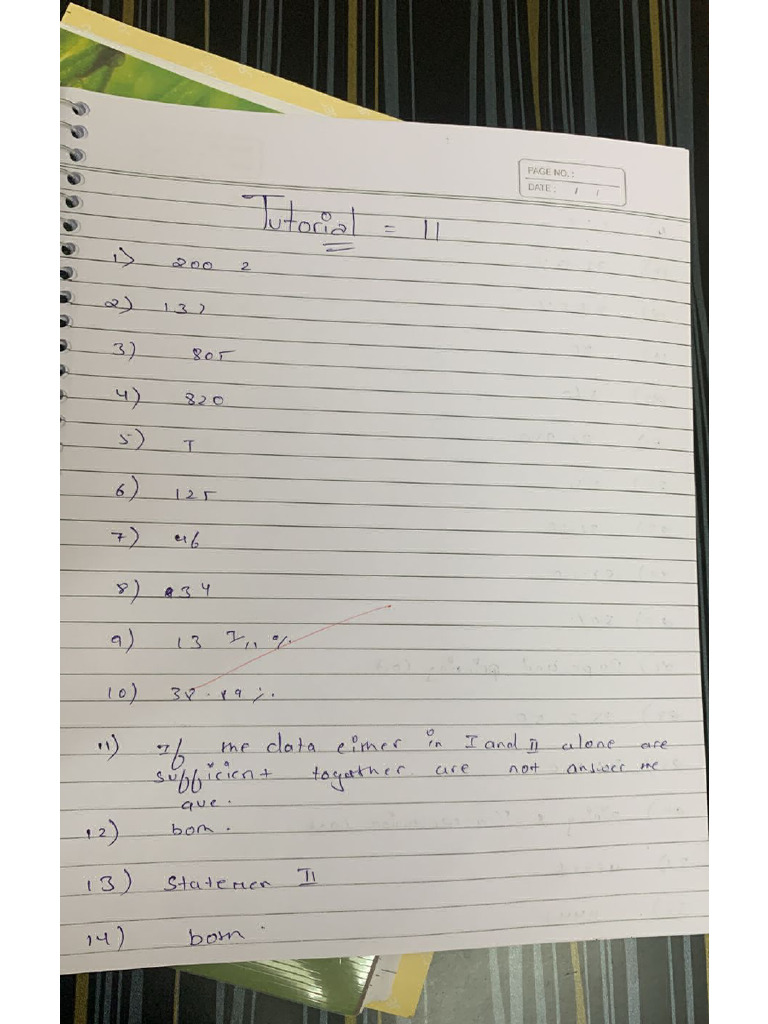 PAGE NO. :
DATE : / /
Tutorial = 11
1) 200 2
2) 132
3) 805
4) 820
5) T
6) 125
7) 46
8) 34
9) 13 %
10) 38.89%.
11) If me data eimer in I and II alone are
sufficient togather are not answer me
que.
12) bom.
13) Statemen II
14) bom.